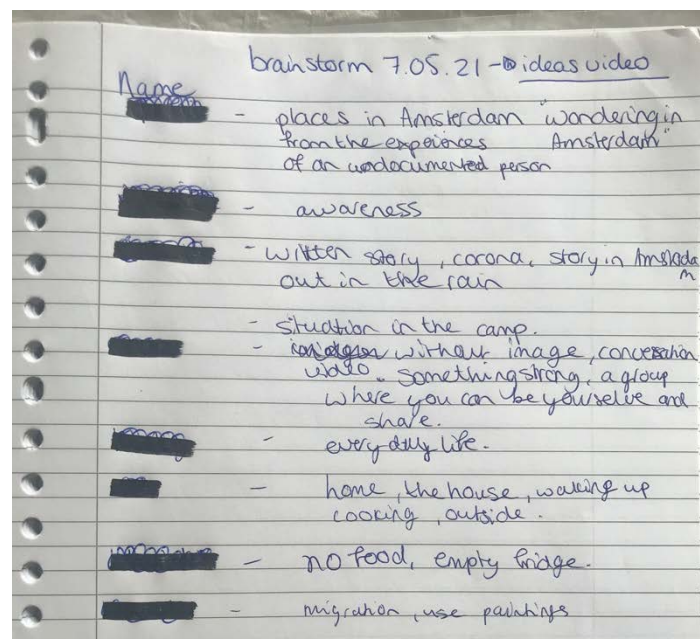 brainstorm 7.05.21 - ideas video
Name
- places in Amsterdam "wondering in
from the expeiences Amsterdam"
of an undocumented person
- awareness
- written story, corona, story in Amsteda
m
out in the rain
- situation in the camp.
- without image, conversation
video. something strong, a group
where you can be yourselve and
share.
- everyday life.
- home, the house, waking up
cooking, outside.
- no food, empty fridge.
- migration, use paintings